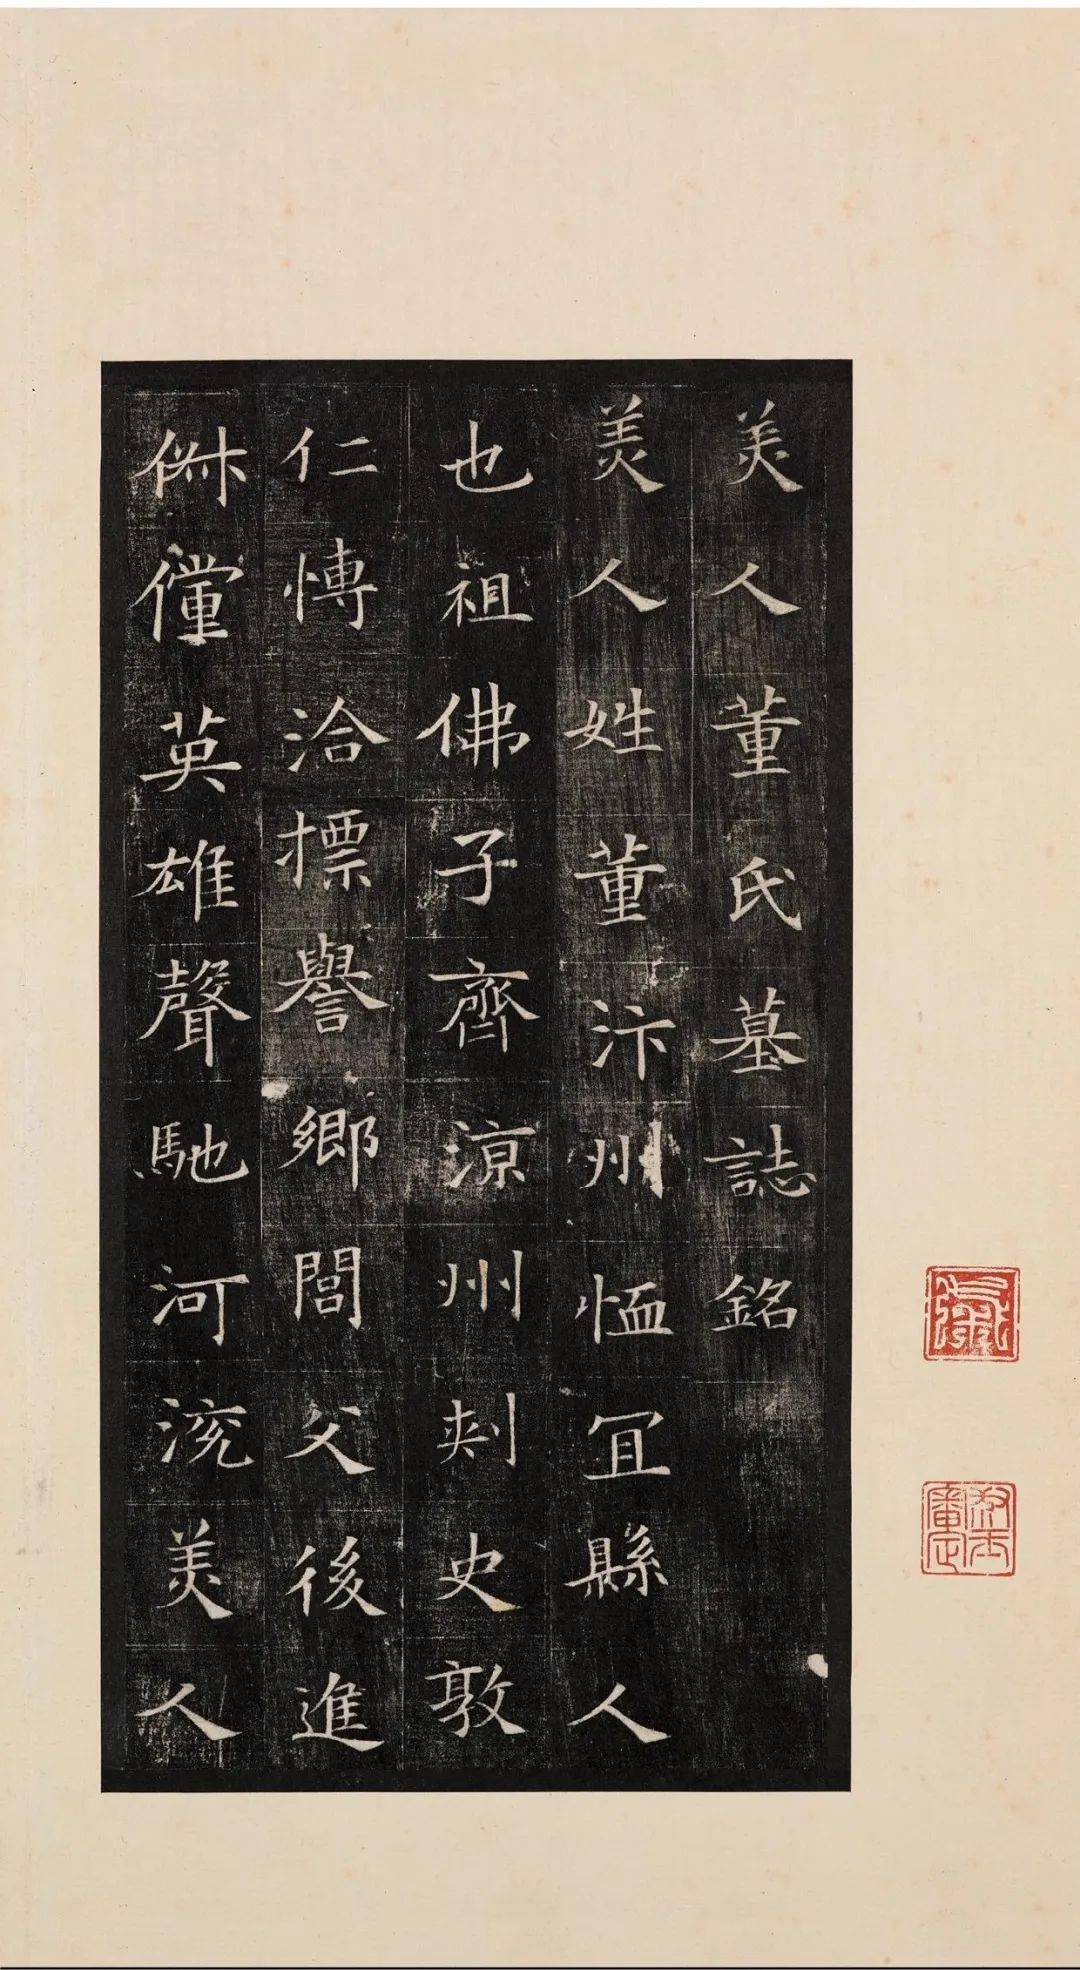 美人董氏墓誌銘
美人姓董汴州恤冝縣人
也祖佛子齊涼州刺史敦
仁慱洽標譽鄉閭父後進
俶儻英雄聲馳河渷美人